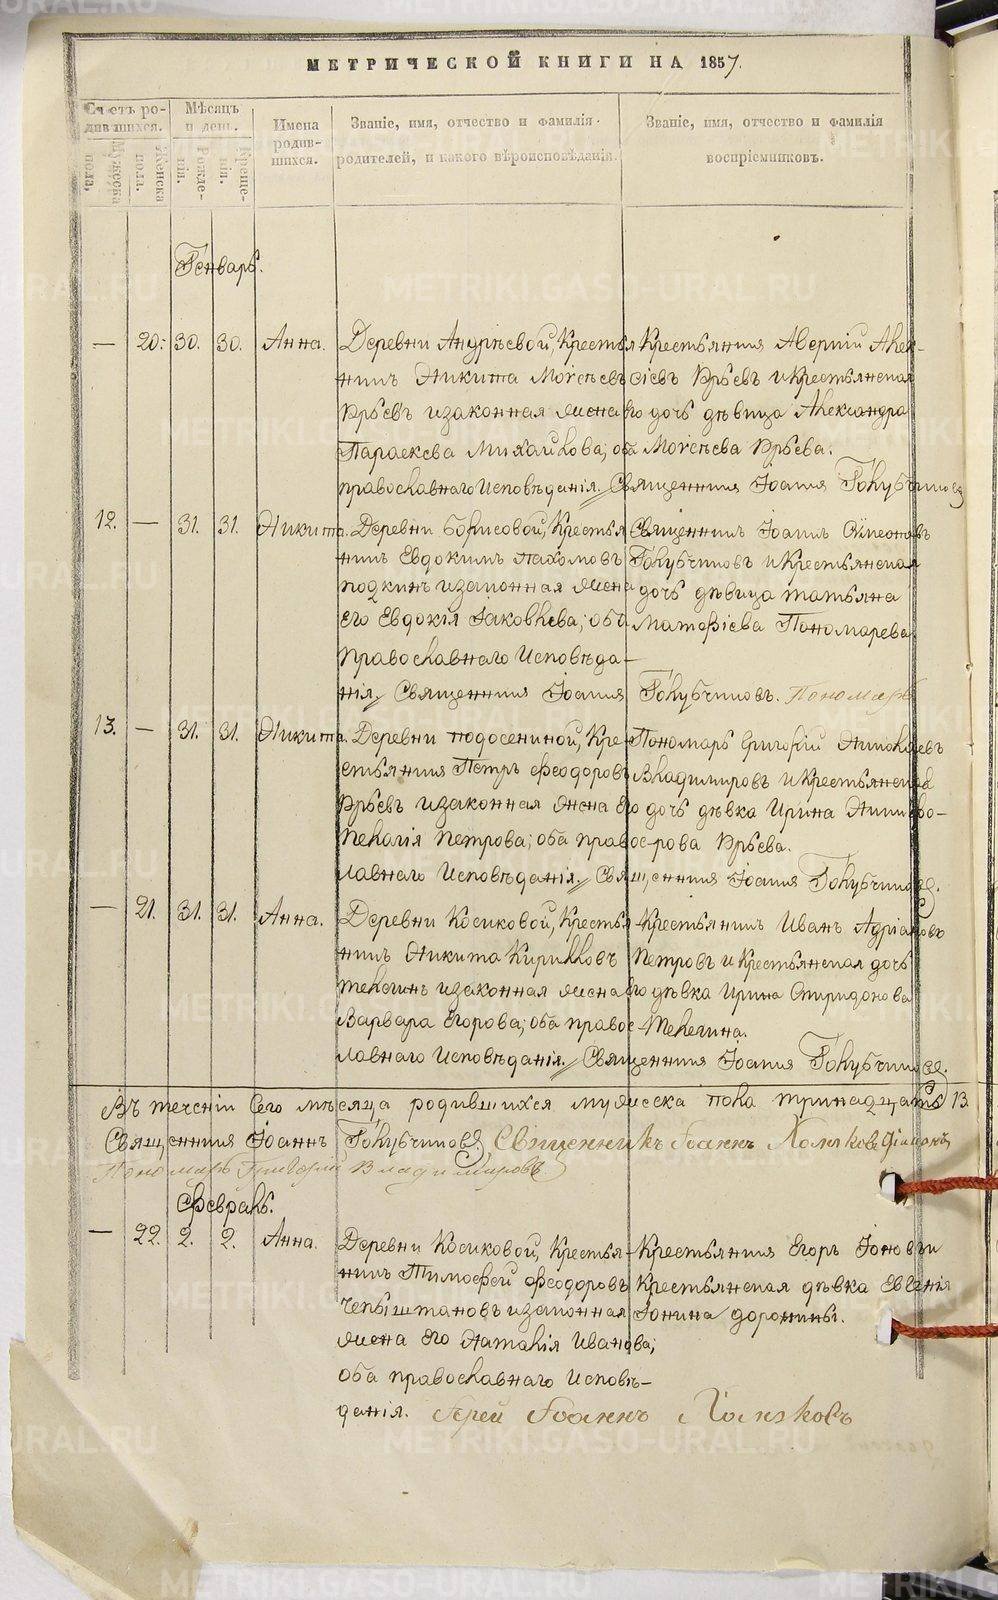 МЕТРИЧЕСКОЙ КНИГИ НА 1857.
Счетъ ро-
дившихся.
Мѣсяцъ
и день.
Имена
родив-
шихся.
Званіе, имя, отчество и фамилія
родителей, и какого вѣроисповѣданія.
Званіе, имя, отчество и фамилія
воспріемниковъ.
Мужеска
пола.
Женска
пола.
Рожде-
нія.
Креще-
нія.
Генварь.
— 20. 30. 30. Анна. Деревни Крестья Крестьянинъ Аверкій Алек-
нинъ Никита Моѵсеевъ сіевъ Юрьевъ и Крестьянская
Юрьевъ и законная жена его дочь дѣвица Александра
Параскева Михайлова; оба Моѵсеева Юрьева.
православнаго Исповѣданія. Священникъ Іоаннъ Голубчиковъ
12. — 31. 31. Никита. Деревни Борисовой, Крестья Священникъ Іоаннъ Сѵмеоновъ
нинъ Евдокимъ Пахомовъ Голубчиковъ и Крестьянская
и законная жена дочь дѣвица Татьяна
его Евдокія Іаковлева; оба Матөіева Пономарева
Православнаго Исповѣда-
нія. Священникъ Іоаннъ Голубчиковъ. Пономарь
13. — 31. 31. Никита. Деревни Подосениной, Кре- Пономарь Григорій Николаевъ
стьянинъ Петръ Феодоровъ Владимировъ и Крестьянская
Юрьевъ и законная жена его дочь дѣвка Ирина Никифо-
Пелагія Петрова; оба право- рова Юрьева.
славнаго Исповѣданія. Священникъ Іоаннъ Голубчиковъ.
— 21. 31. 31. Анна. Деревни Косиковой, Крестья- Крестьянинъ Иванъ Адріановъ
нинъ Никита Кирилловъ Петровъ и Крестьянская дочь
Телегинъ и законная жена его дѣвка Ирина Спиридонова
Варвара Егорова; оба право- Телегина.
славнаго Исповѣданія. Священникъ Іоаннъ Голубчиковъ.
Въ теченіи сего мѣсяца родившихся мужеска пола тринадцать 13
Священникъ Іоаннъ Голубчиковъ, Священникъ Іоаннъ Холмковъ
Пономарь Григорій Владимировъ
Февраль.
— 22. 2. 2. Анна. Деревни Косиковой, Крестья- Крестьянинъ Егоръ Іоновъ и
нинъ Тимофей Феодоровъ Крестьянская дѣвка Евгенія
Чепыштановъ и законная Іонина Доронины.
жена его Наталія Иванова;
оба православнаго Исповѣ-
данія. Іерей Іоаннъ Холмковъ